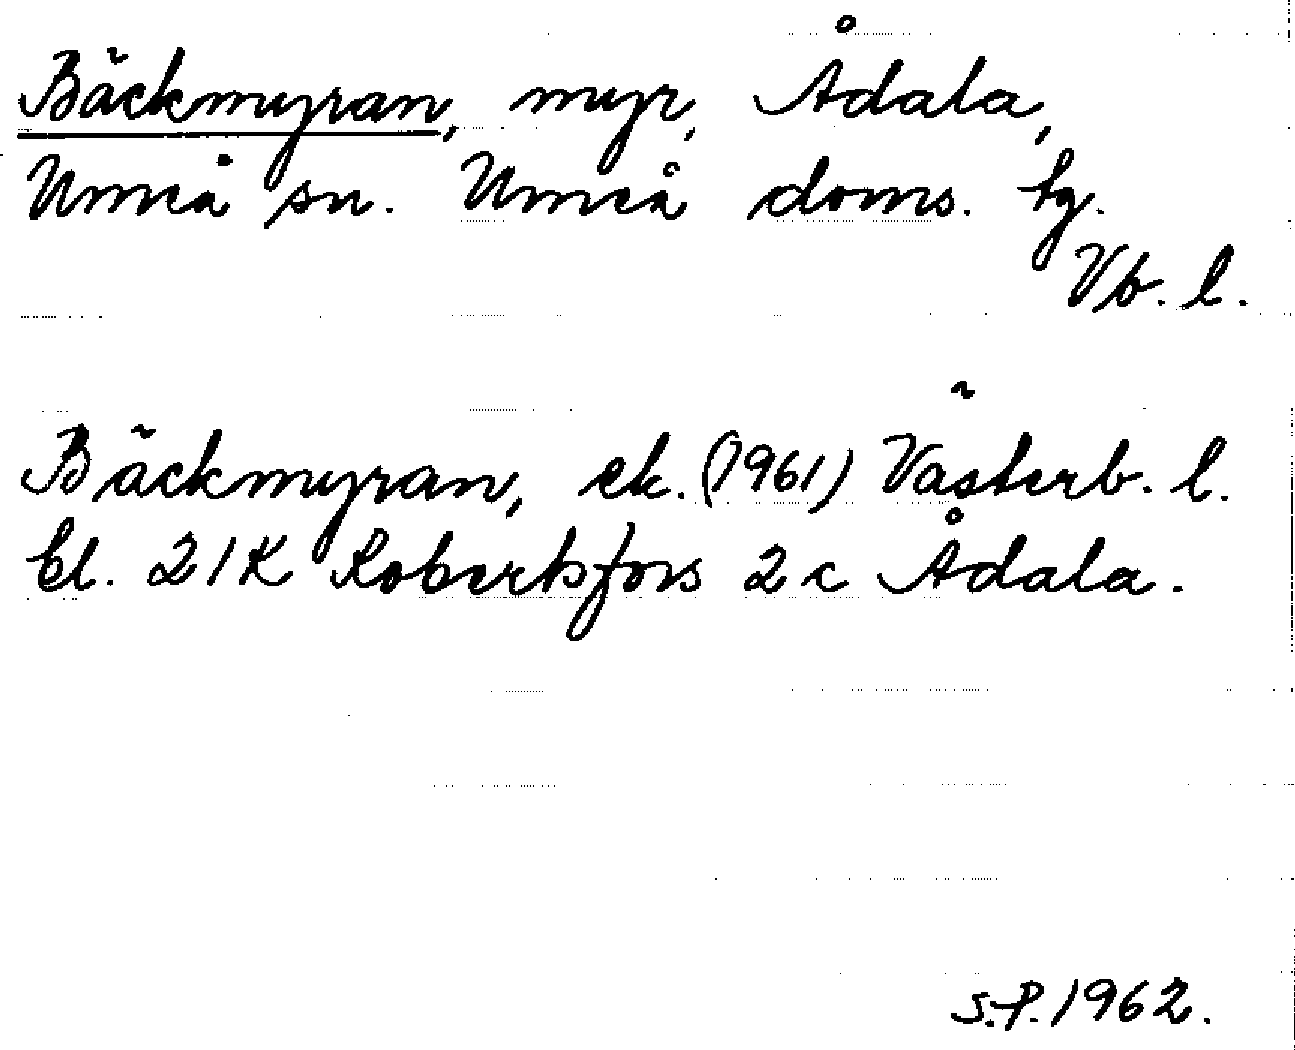 Bäckmyran, myr, Ådala,
Umeå sn. Umeå doms. tg.
Vb. l.
Bäckmyran, ek. (1961) Västerb. l.
bl. 21K Robertsfors 2 c Ådala.
S.P. 1962.